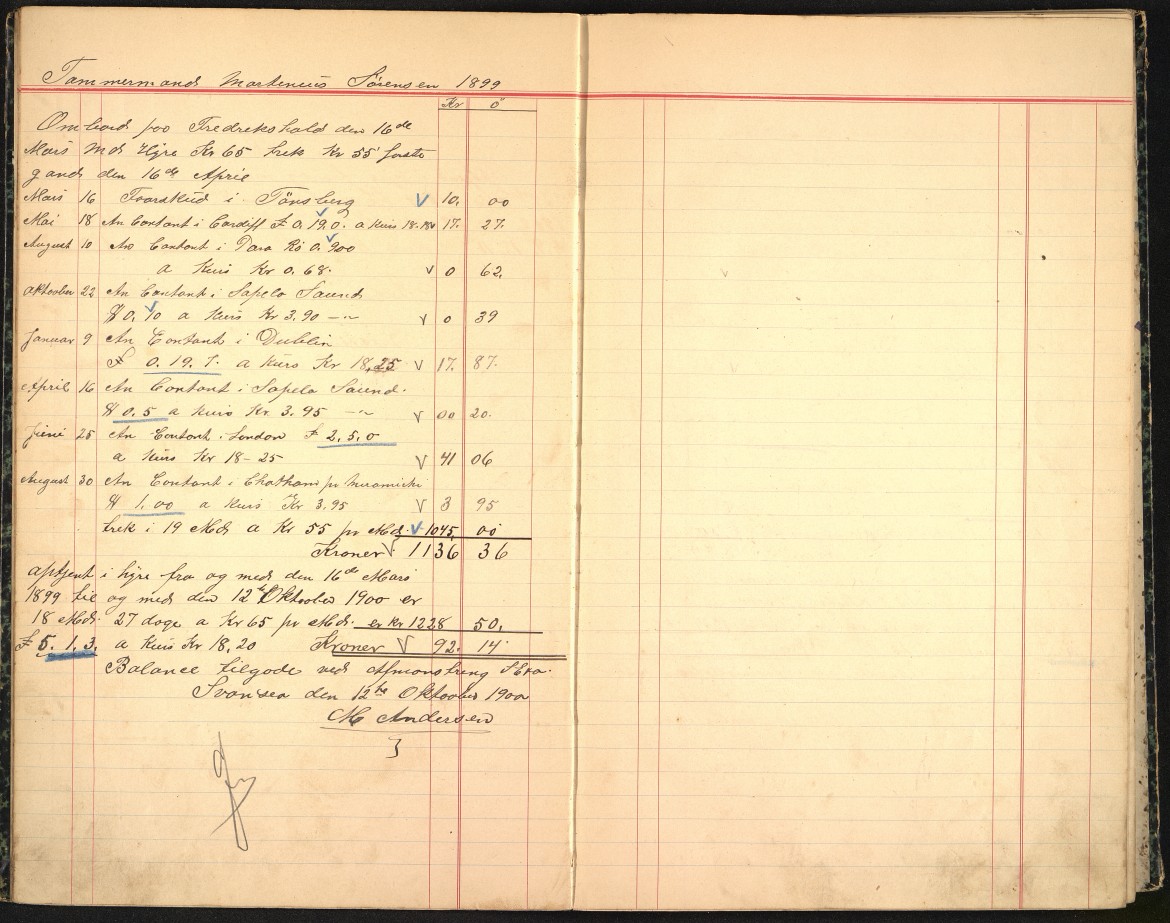 Tømmermand Martenius Sørensen 1899
Kr ö
Ombord paa Fredrekshald den 16de
Mars Md Hyre Kr 65 trek Kr 55 første
gand den 16de Aprie
Mars 16 Forskud i Tönsberg V 10. 00
Mai 18 An Contant i Cardiff £ 0.19.0. a Kurs 18.18 17. 27.
August 10 An Contant i Para Rs 0.900
a Kurs Kr 0.68. V 0 62.
Oktoober 22 An Contant i Sapelo Saund
$ 0.10 a Kurs Kr 3.90 -"- V 0 39
Januar 9 An Contant i Dublin
£ 0.19.7. a Kurs Kr 18,25 V 17. 87.
April 16 An Contant i Sapelo Saund.
$ 0.5 a Kurs Kr. 3.95 -"- V 00 20.
Juni 25 An Contant i London £ 2.5.0
a Kurs Kr 18-25 V 41 06
August 30 An Contant i Chatham pr Miramichi
$ 1.00 a Kurs Kr 3.95 V 3 95
trek i 19 Md a Kr 55 pr Md. V 1045, 00
Kroner V 1136 36
optjent i hyre fra og med den 16de Mars
1899 til og med den 12te Oktoober 1900 er
18 Md. 27 dage a Kr 65 pr Md. er kr 1228 50,
£ 5.1.3. a Kurs Kr 18,20 Kroner V 92. 14
Balance tilgode ved Afmonstring
Svansea den 12te Oktoober 1900
M Andersen